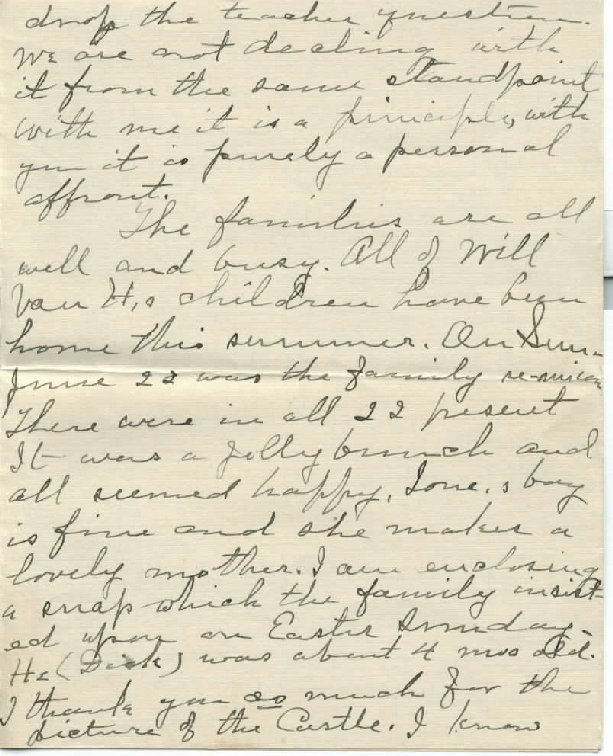 drop the teacher question.
We are not dealing with
it from the same standpoint
with me it is a principle, with
you it is purely a personal
affront.
The families are all
well and busy. All of Will
Van H,s children have been
home this summer. On Sun-
June 22 was the family re-union
There were in all 22 present
It was a jolly bunch and
all seemed happy. Ione,s boy
is fine and she makes a
lovely mother. I am enclosing
a snap which the family insist-
ed upon on Easter Sunday-
He (Dick) was about 4 mos old.
I thank you so much for the
picture of the Castle. I know